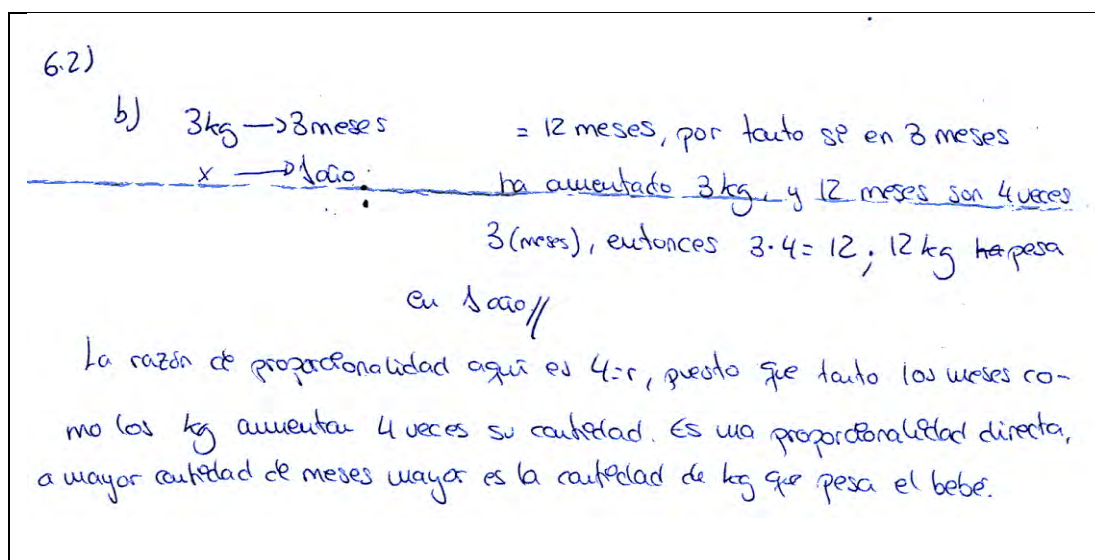 6.2)
b) 3kg → 3 meses = 12 meses, por tanto si en 3 meses
x → 1 año. ha aumentado 3 kg, y 12 meses son 4 veces
3 (meses), entonces 3·4 = 12; 12 kg ha pesa
en 1 año//
La razón de proporcionalidad aquí es 4=r, puesto que tanto los meses co-
mo los kg aumentan 4 veces su cantidad. Es una proporcionalidad directa,
a mayor cantidad de meses mayor es la cantidad de kg que pesa el bebé.